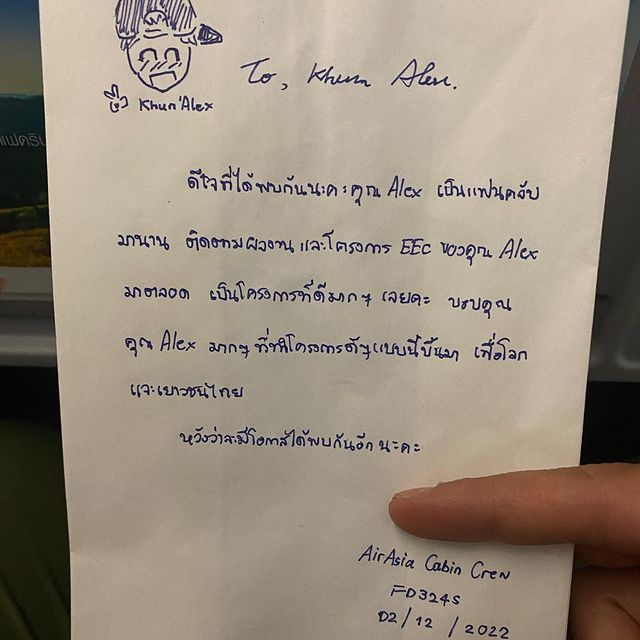 To, Khun Alex.
คือ Khun'Alex
ดีใจที่ได้พบกันนะคะคุณ Alex เป็นแฟนคลับ
มานาน ติดตามผลงานและโครงการ EEC ของคุณ Alex
มาตลอด เป็นโครงการที่ดีมากๆ เลยคะ ขอบคุณ
คุณ Alex มากๆ ที่ทำโครงการดีๆแบบนี้ขึ้นมา เพื่อโลก
และเยาวชนไทย
หวังว่าจะมีโอกาสได้พบกันอีก นะคะ
AirAsia Cabin Crew
FD3245
02/12/2022